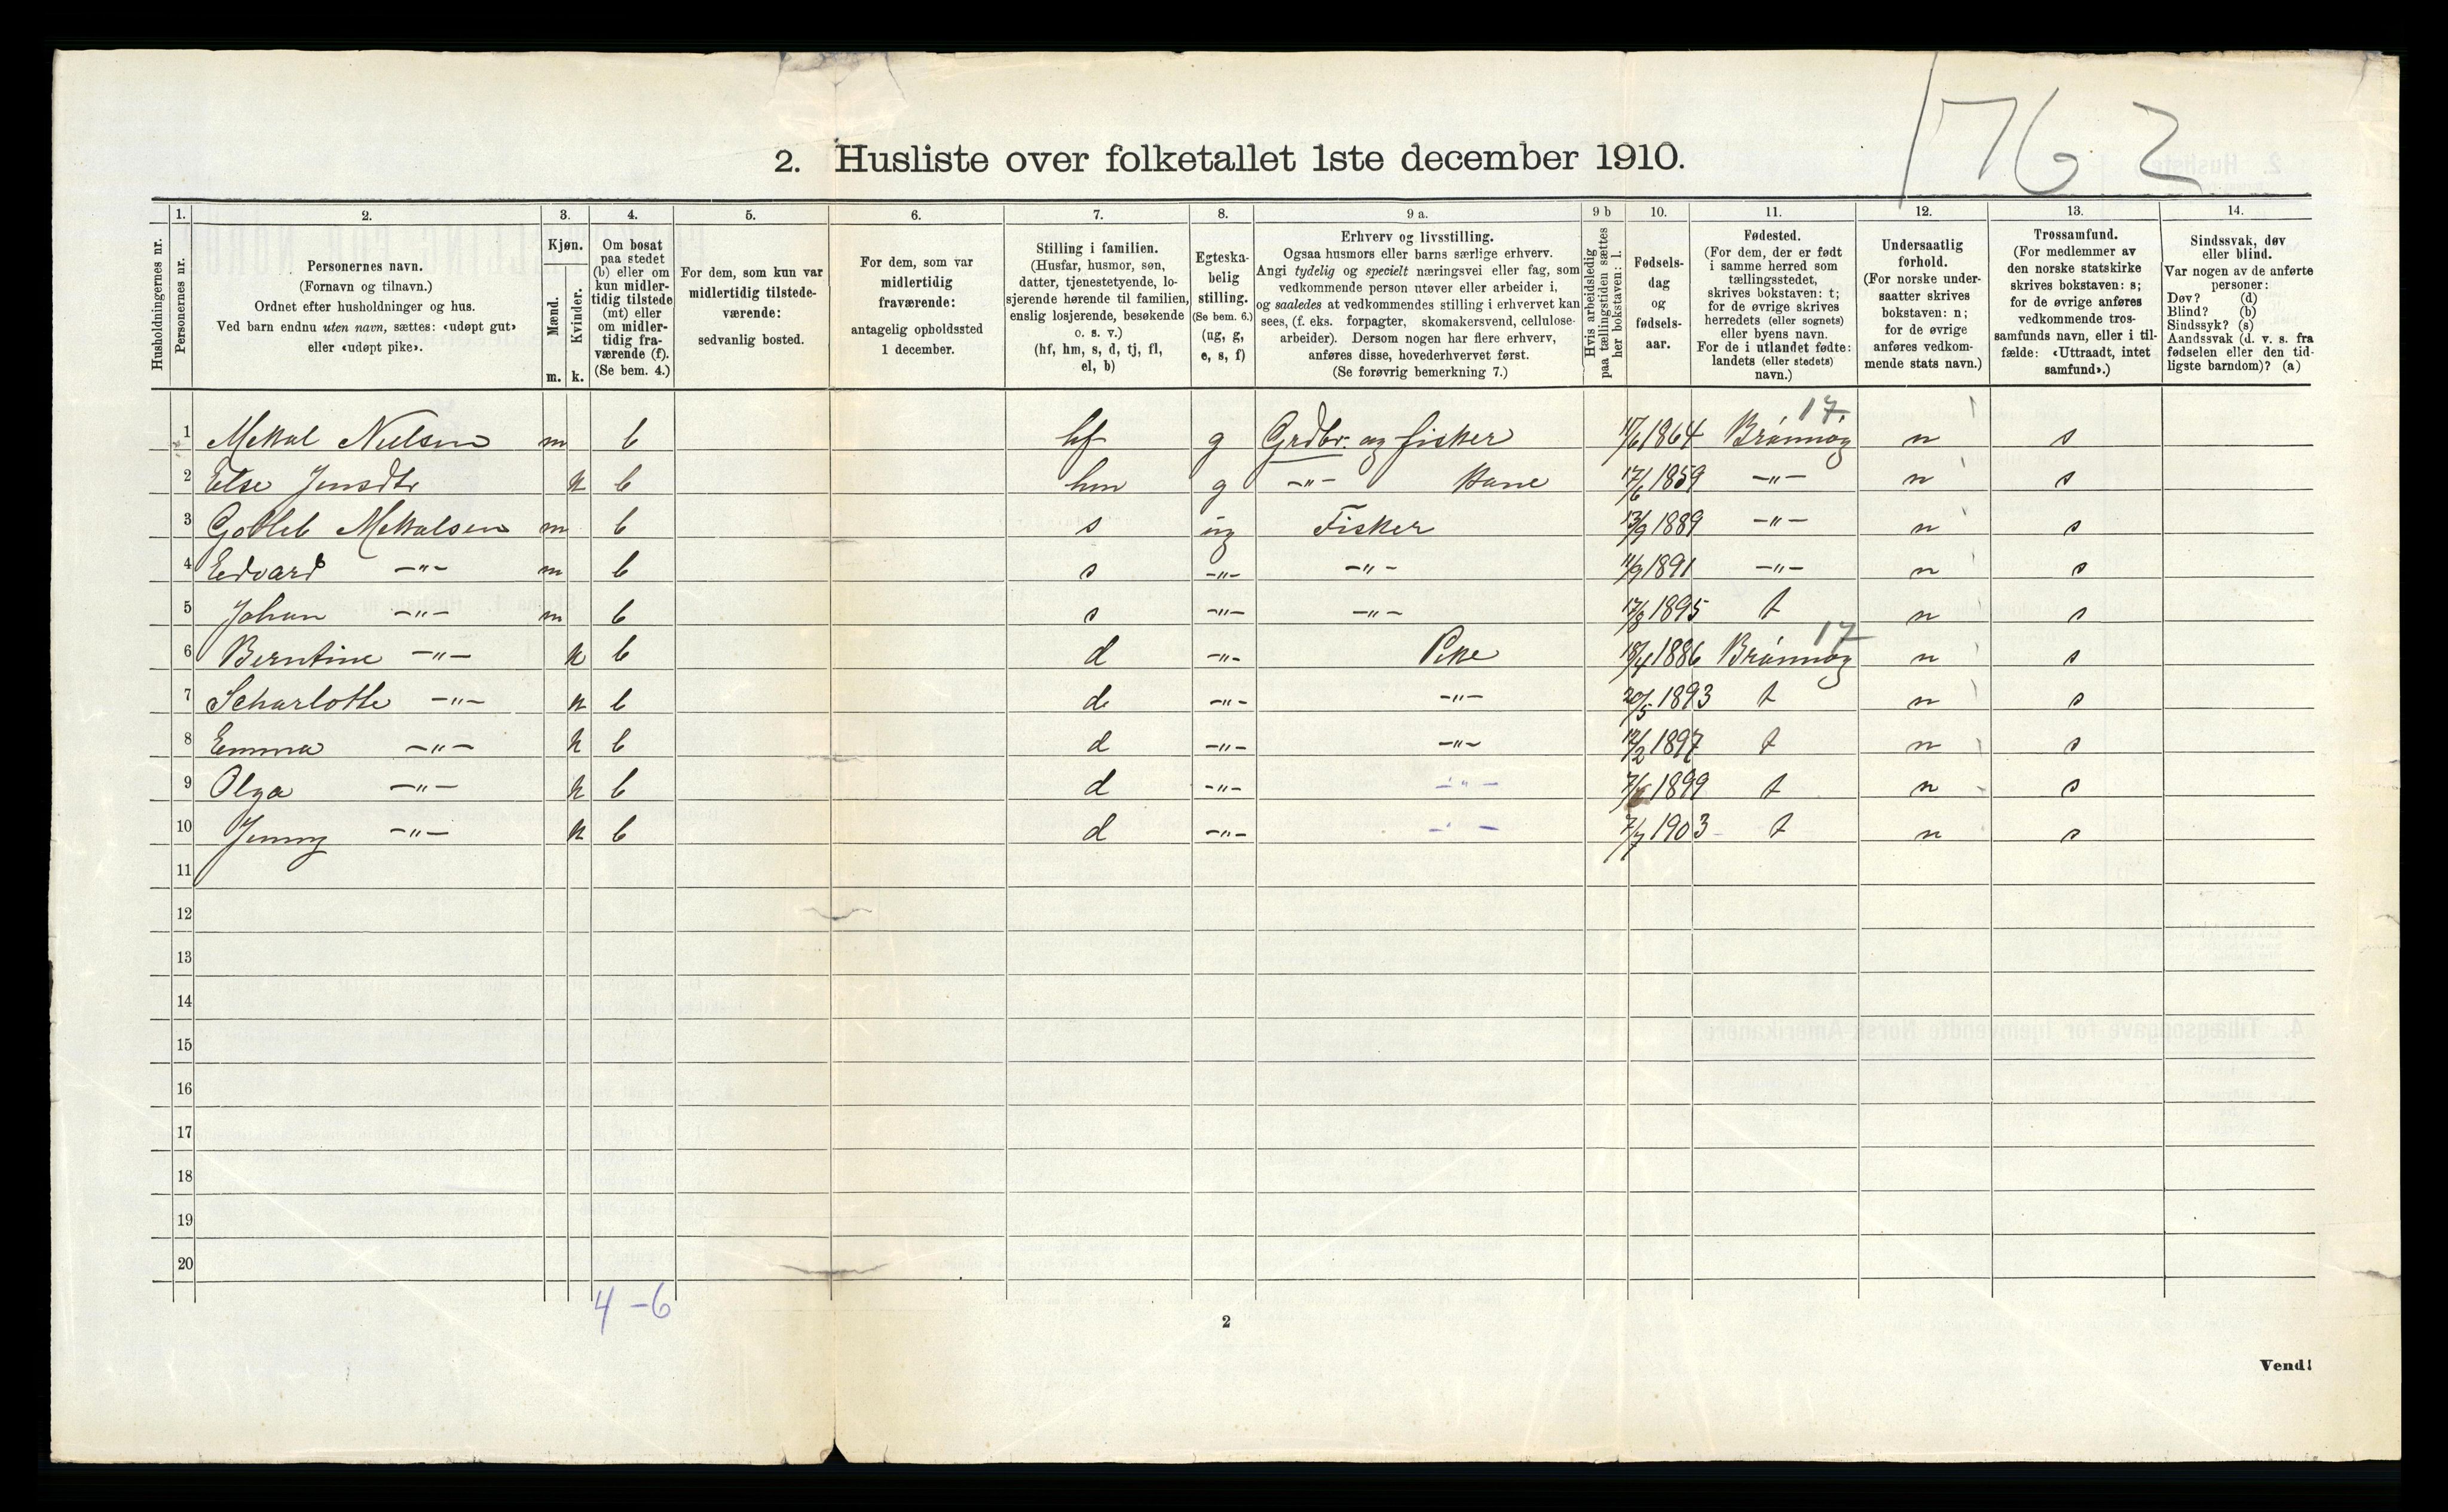 1762
2. Husliste over folketallet 1ste december 1910.
Husholdningernes nr.
1. Personernes nr.
2. Personernes navn.
(Fornavn og tilnavn.)
Ordnet efter husholdninger og hus.
Ved barn endnu uten navn, sættes: «udøpt gut»
eller «udøpt pike».
3. Kjøn.
Mænd. m.
Kvinder. k.
4. Om bosat
paa stedet
(b) eller om
kun midler-
tidig tilstede
(mt) eller
om midler-
tidig fra-
værende (f).
(Se bem. 4.)
5. For dem, som kun var
midlertidig tilstede-
værende:
sedvanlig bosted.
6. For dem, som var
midlertidig
fraværende:
antagelig opholdssted
1 december.
7. Stilling i familien.
(Husfar, husmor, søn,
datter, tjenestetyende, lo-
sjerende hørende til familien,
enslig losjerende, besøkende
o. s. v.)
(hf, hm, s, d, tj, fl,
el, b)
8. Egteska-
belig
stilling.
(Se bem. 6.)
(ug, g,
e, s, f)
9 a. Erhverv og livsstilling.
Ogsaa husmors eller barns særlige erhverv.
Angi tydelig og specielt næringsvei eller fag, som
vedkommende person utøver eller arbeider i,
og saaledes at vedkommendes stilling i erhvervet kan
sees, (f. eks. forpagter, skomakersvend, cellulose-
arbeider). Dersom nogen har flere erhverv,
anføres disse, hovederhvervet først.
(Se forøvrig bemerkning 7.)
9 b Hvis arbeidsledig
paa tællingstiden sættes
her bokstaven: l.
10. Fødsels-
dag
og
fødsels-
aar.
11. Fødested.
(For dem, der er født
i samme herred som
tællingsstedet,
skrives bokstaven: t;
for de øvrige skrives
herredets (eller sognets)
eller byens navn.
For de i utlandet fødte:
landets (eller stedets)
navn.)
12. Undersaatlig
forhold.
(For norske under-
saatter skrives
bokstaven: n;
for de øvrige
anføres vedkom-
mende stats navn.)
13. Trossamfund.
(For medlemmer av
den norske statskirke
skrives bokstaven: s;
for de øvrige anføres
vedkommende tros-
samfunds navn, eller i til-
fælde: «Uttraadt, intet
samfund».)
14. Sindssvak, døv
eller blind.
Var nogen av de anførte
personer:
Døv? (d)
Blind? (b)
Sindssyk? (s)
Aandssvak (d. v. s. fra
fødselen eller den tid-
ligste barndom)? (a)
17
1 Mekal Nielsen m b hf g Grdbr. og fisker 17/6 1864 Brønnøy n s
2 Else Jensdtr k b hm g -"- Kone 17/6 1859 -"- n s
3 Gotleb Mekalsen m b s ug Fisker 13/9 1889 -"- n s
4 Edvard -"- m b s -"- -"- 11/9 1891 -"- n s
5 Johan -"- m b s -"- -"- 17/8 1895 t n s
17
6 Berntine -"- k b d -"- Pike 18/4 1886 Brønnøy n s
7 Scharlotte -"- k b d -"- -"- 20/5 1893 t n s
8 Emma -"- k b d -"- -"- 12/2 1897 t n s
9 Olga -"- k b d -"- -"- 1899 t n s
10 Jenny -"- k b d -"- -"- 7/7 1903 t n s
11
12
13
14
15
16
17
18
19
20
4 - 6
2
Vend!